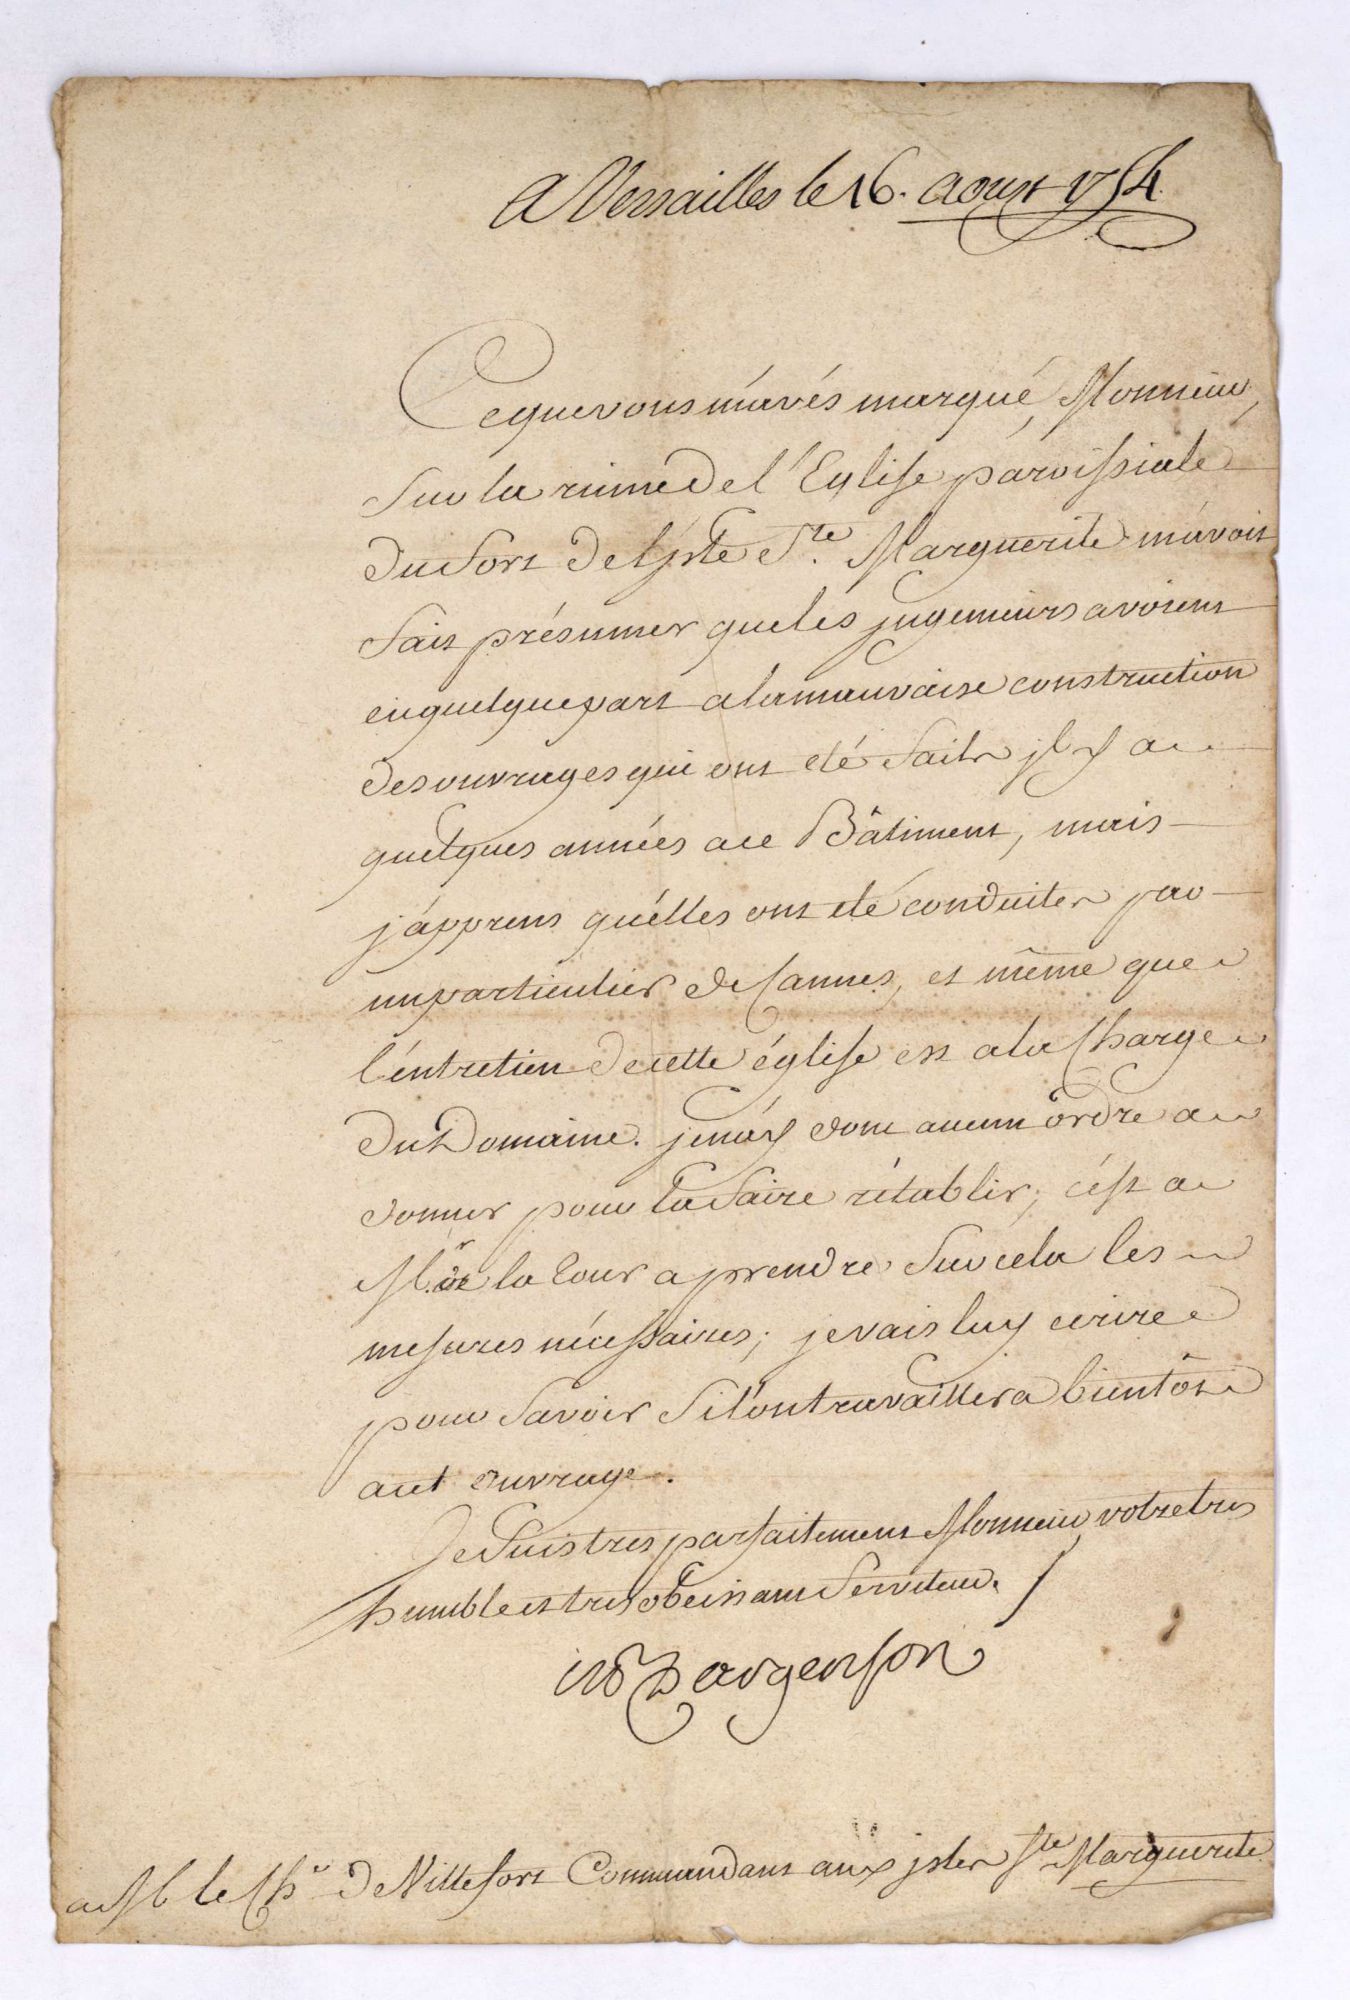 A Versailles le 16. aoust 1754.
Ce que vous m'avés marqué, Monsieur,
Sur la ruine de l'Eglise paroissiale
du fort de l'isle Ste. Marguerite m'avoit
fait présumer que les jngenieurs avoient
eu quelque part a la mauvaise construction
des ouvrages qui ont eté faits jl y a
quelques années a ce Bâtiment, mais
j'apprens qu'elles ont eté conduites par
un particulier de Cannes, et même que
l'entretien de cette église est a la Charge
du Domaine. je n'ay donc aucun ordre a
donner pour la faire rétablir; c'est a
Mr. de la Tour a prendre Sur cela les
mesures nécessaires; je vais luy ecrire
pour Savoir Si l'on travaillera bientôt
a cet ouvrage.
Je Suis tres parfaitement Monsieur, votre tres
humble et tres obeissant Serviteur.
M D'argenson
a M. le Chr. de Villefort Commandant aux jsles Ste Marguerite